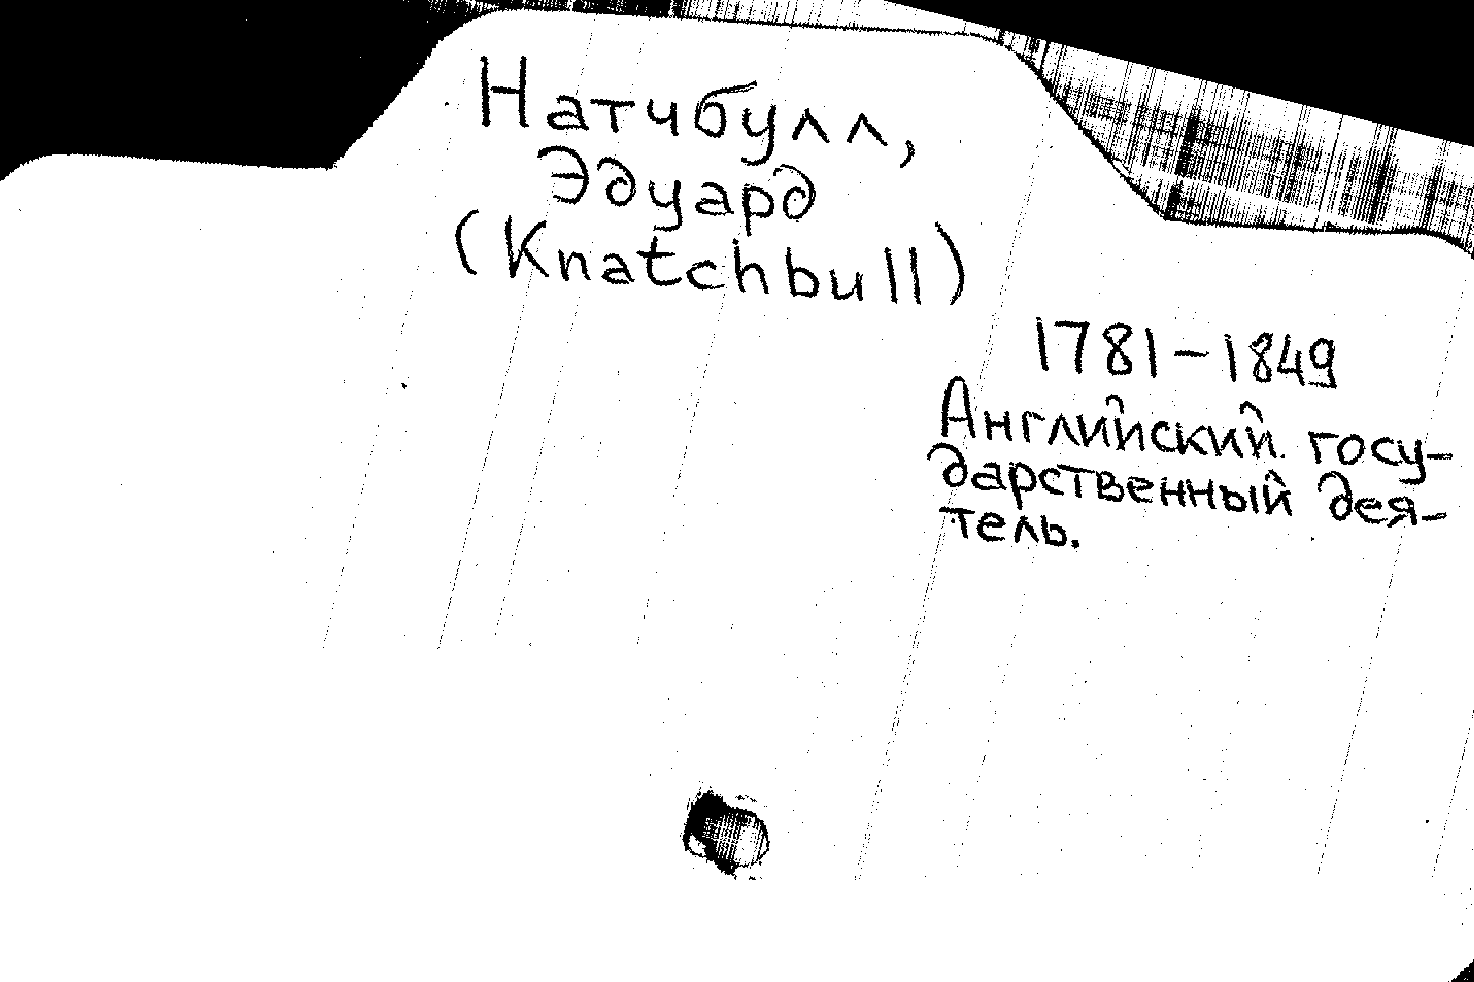 Натчбулл,
Эдуард
(Knatchbull)
1781-1849
Английский госу-
дарственный дея-
тель.